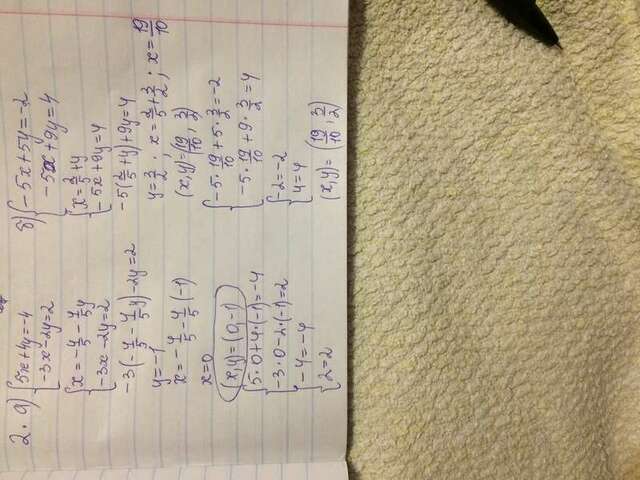 2. а) { 5x+4y=-4
-3x-2y=2
{ x = -4/5 - 4/5y
-3x-2y=2
-3(-4/5 - 4/5y)-2y=2
y=-1
x=-4/5 - 4/5(-1)
x=0
(x,y)=(0,-1)
{ 5·0+4·(-1)=-4
-3·0-2·(-1)=2
{ -4=-4
2=2
б) { -5x+5y=-2
-5x+9y=4
{ x=2/5+y
-5x+9y=4
-5(2/5+y)+9y=4
y=3/2 ; x=2/5+3/2 ; x=19/10
(x,y)=(19/10, 3/2)
{ -5·19/10+5·3/2=-2
-5·19/10+9·3/2=4
{ -2=-2
4=4
(x,y)= (19/10, 3/2)